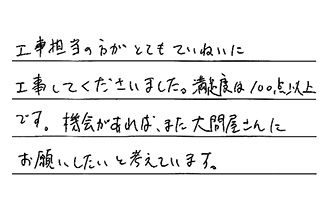 工事担当の方がとてもていねいに
工事してくださいました。満足度は100点以上
です。機会があれば、また大問屋さんに
お願いしたいと考えています。